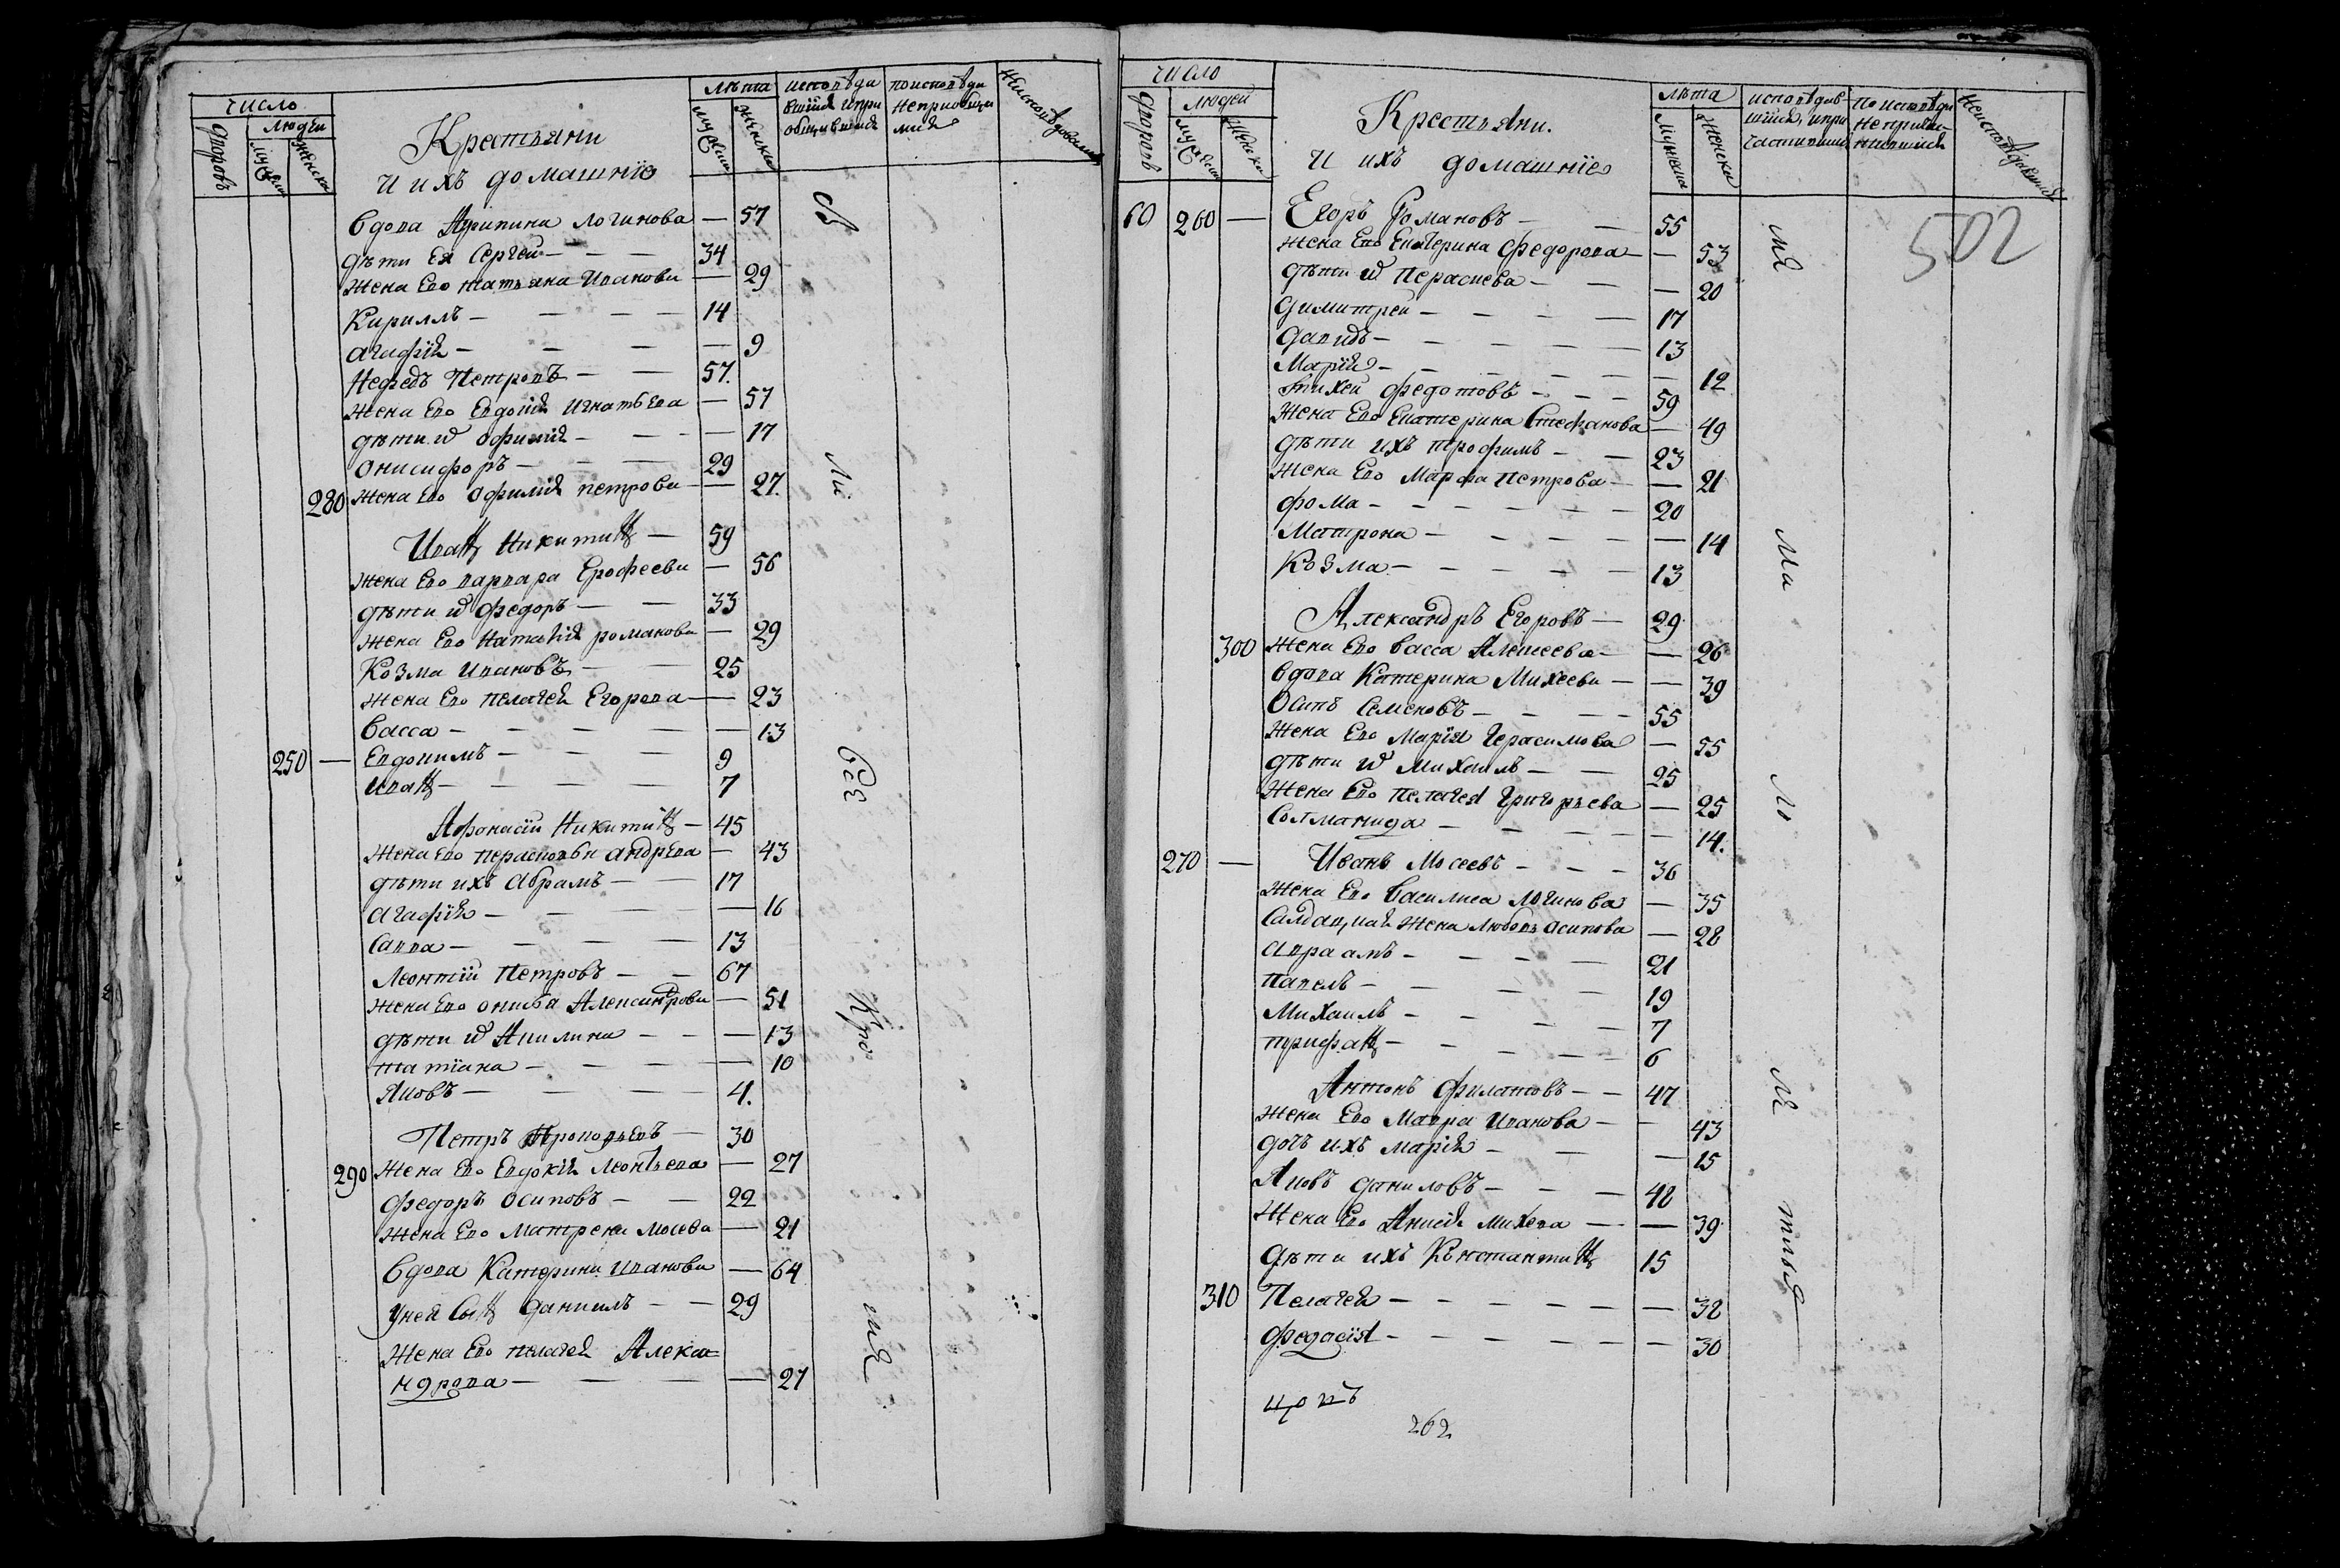 число
людей
дворовъ
мужеска
женска
Крестьяни
и ихъ домашніе
лѣта
мужеска
женска
исповѣда
вшїися и при
общившїися
по исповѣди
неприобщи
мшїися
неисповѣдавшїися
вдова Агрипина Логинова — 57
дѣти Ея Сергей — 34
Жена Ево татьяна Иванова — 29
Кириллъ — 14
агафїя — 9
Нефедъ Петровъ — 57.
Жена Ево Евдокїя Игнатьева — 57
дѣти иⷯ Офимїя — 17
Онисифоръ — 29
280 Жена Ево Офимия петрова — 27.
Иванъ Никитинъ — 59
Жена Ево варвара Ерофеева — 56
дѣти иⷯ Федоръ — 33
Жена Ево Наталїя романова — 29
Козма Ивановъ — 25
Жена Ево пелагея Егорова — 23
васса — 13
250 — Евдокимъ — 9
Иванъ — 7
Афонасїи Никитинъ — 45
Жена Ево перасковья андрѣева — 43
дѣти ихъ Абрамъ — 17
агафїя — 16
Савва — 13
Леонтїи Петровъ — 67
Жена Ево Александрова — 51
дѣти иⷯ Акилина — 13
татїана — 10
Яковъ — 4.
Петръ Прокопьевъ — 30
290 Жена Ево Евдокїя Леонтьева — 27
Федоръ Осиповъ — 22
Жена Ево Матрена Мосева — 21
Вдова Катерина Иванова — 64
У ней Сынъ Данилъ — 29
Жена Ево пелагея Алекса=
ндрова — 27
число
людей
дворовъ
мужеска
женска
Крестьяни.
и ихъ домашнїе
лѣта
мужеска
женска
исповѣдав
шїися, и при
частившї
по исповѣди
неприча-
стившїися
неисповѣдавшїися
502
60 260 — Егоръ Романовъ — 55
Жена Ево Екатерина Федорова — 53
дѣти иⷯ Перасцева — 20
Димитрей — 17
Давидъ — 13
Марїя — 12
тихеи Федотовъ — 59
Жена Ево Екатерина Стефанова — 49
дѣти ихъ трофимъ — 23
Жена Ево Марфа Петрова — 21
Фома — 20
Матрона — 14
Козма — 13
Александръ Егоровъ — 29
300 Жена Ево Васса Алексеева — 26
вдова Катерина Михеева — 39
Осипъ Семеновъ — 55
Жена Ево Марїя Герасимова — 55
дѣти иⷯ Михаилъ — 25
Жена Ево пелагея Григорьева — 25
Соломанида — 14.
270 — Иванъ Мосеевъ — 36
Жена Ево Василиса Логинова — 35
Салдацкая Жена Любовь Осипова — 28
Авраамъ — 21
Павелъ — 19
Михаилъ — 7
трифанъ — 6
Антонъ Филатовъ — 47
Жена Ево Мавра Иванова — 43
дочь ихъ марїя — 15
Яковъ Даниловъ — 48
Жена Ево Анисїя Михева — 39
Дѣти ихъ Константинъ 15
310 Пелагея — 32
Федосїя — 30
262